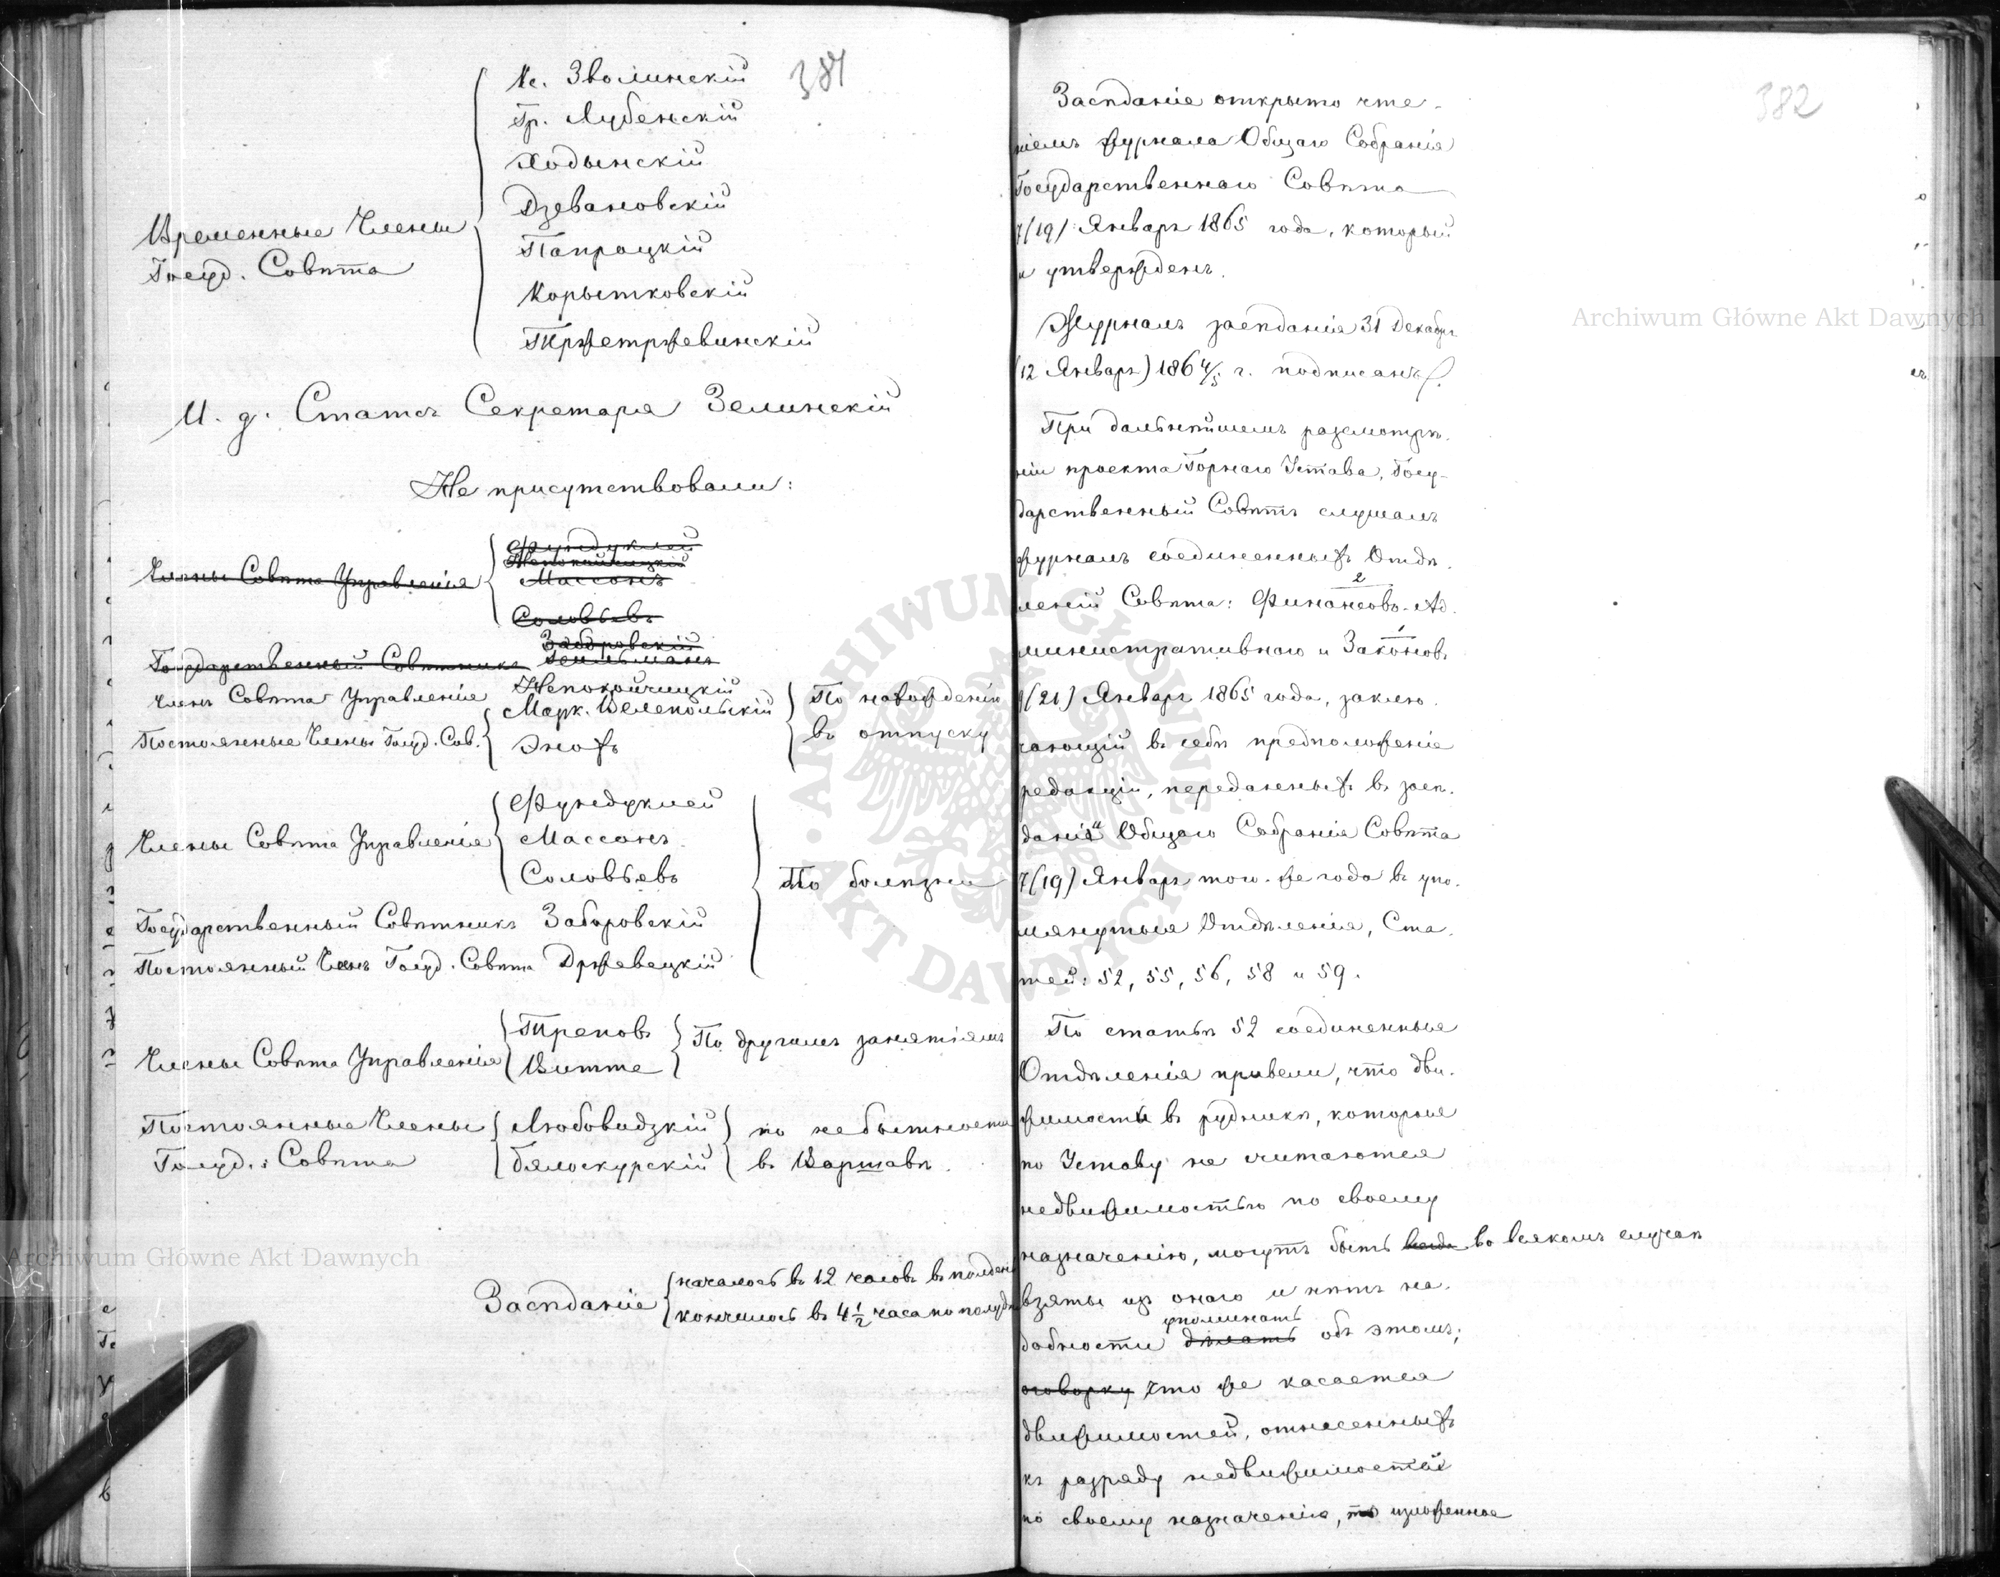 381
Кс. Зволинскій
Гр. Лубенскій
Ходынскій
Дзевановскій
Временные Члены
Госуд. Совѣта
Папроцкій
Корытковскій
Тржетржевинскій
И. д. Статсъ Секретаря Зелинскій
Не присутствовали:
Члены Совѣта Управленія
Фундуклей
Непокойчицкій
Массонъ
Соловьевъ
Заборовскій
Государственный Совѣтникъ Гечевичъ
Членъ Совѣта Управленія Непокойчицкій
Постоянные Члены Госуд. Сов.
Марк. Велепольскій
Энохъ
По нахожденію
въ отпуску
Члены Совѣта Управленія
Фундуклей
Массонъ
Соловьевъ
По болѣзни
Государственный Совѣтникъ Заборовскій
Постоянный Членъ Госуд. Совѣта Држевецкій
Члены Совѣта Управленія
Треповъ
Витте
По другимъ занятіямъ
Постоянные Члены
Госуд. Совѣта
Любовидзкій
Бялоскурскій
по небытности
въ Варшавѣ.
Засѣданіе
началось въ 12 часовъ въ полдень
кончилось въ 4 1/2 часа по полудни
382
Засѣданіе открыто чте-
ніемъ журнала Общаго Собранія
Государственнаго Совѣта
7(19) Января 1865 года, который
и утвержденъ.
Журналъ засѣданія 31 Декабря
(12 Января) 1864/5 г. подписанъ.
При дальнѣйшемъ разсмотрѣ-
ніи проекта Горнаго Устава, Госу-
дарственный Совѣтъ слушалъ
журналъ соединенныхъ Отдѣ-
2
леній Совѣта: Финансово-Ад-
1
министративнаго и Законовъ
9(21) Января 1865 года, заклю-
чающій въ себѣ предположеніе
редакціи, переданныхъ въ засѣ-
даніи Общаго Собранія Совѣта
7(19) Января того-же года въ упо-
мянутыя Отдѣленія, Ста-
тей: 52, 55, 56, 58 и 59.
По статьѣ 52 соединенныя
Отдѣленія привели, что дви-
жимости въ рудникѣ, которыя
по Уставу не считаются
недвижимостью по своему
назначенію, могутъ быть всегда во всякомъ случаѣ
взяты изъ онаго и нѣтъ на-
упоминать
добности дѣлать объ этомъ;
оговорку что же касается
движимостей, отнесенныхъ
къ разряду недвижимостей
по своему назначенію, то изложенное
Archiwum Główne Akt Dawnych
Archiwum Główne Akt Dawnych
ARCHIWUM GŁÓWNE AKT DAWNYCH